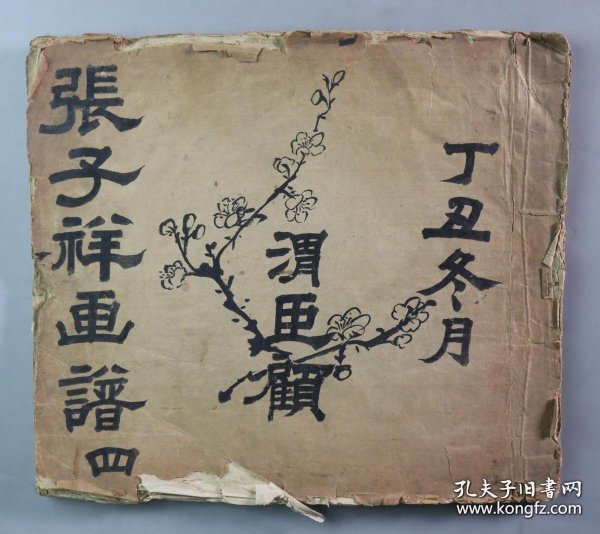 丁丑冬月
渭臣顧
張子祥画譜四
孔夫子旧书网
www.kongfz.com